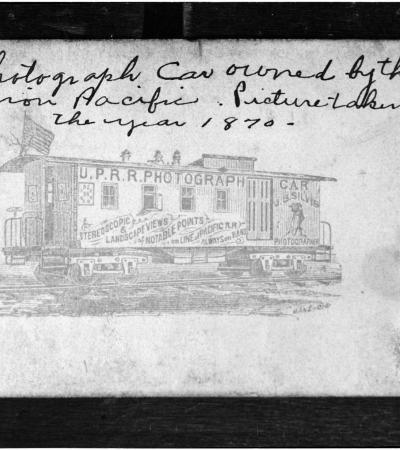 hotograph Car owned by th
nion Pacific. Picture taken
the year 1870-
U.P.R.R. PHOTOGRAPH CAR
J.B. SILVIS
STEREOSCOPIC &
LANDSCAPE VIEWS
of NOTABLE POINTS
on LINE of PACIFIC R.R.
ALWAYS on HAND
PHOTOGRAPHER